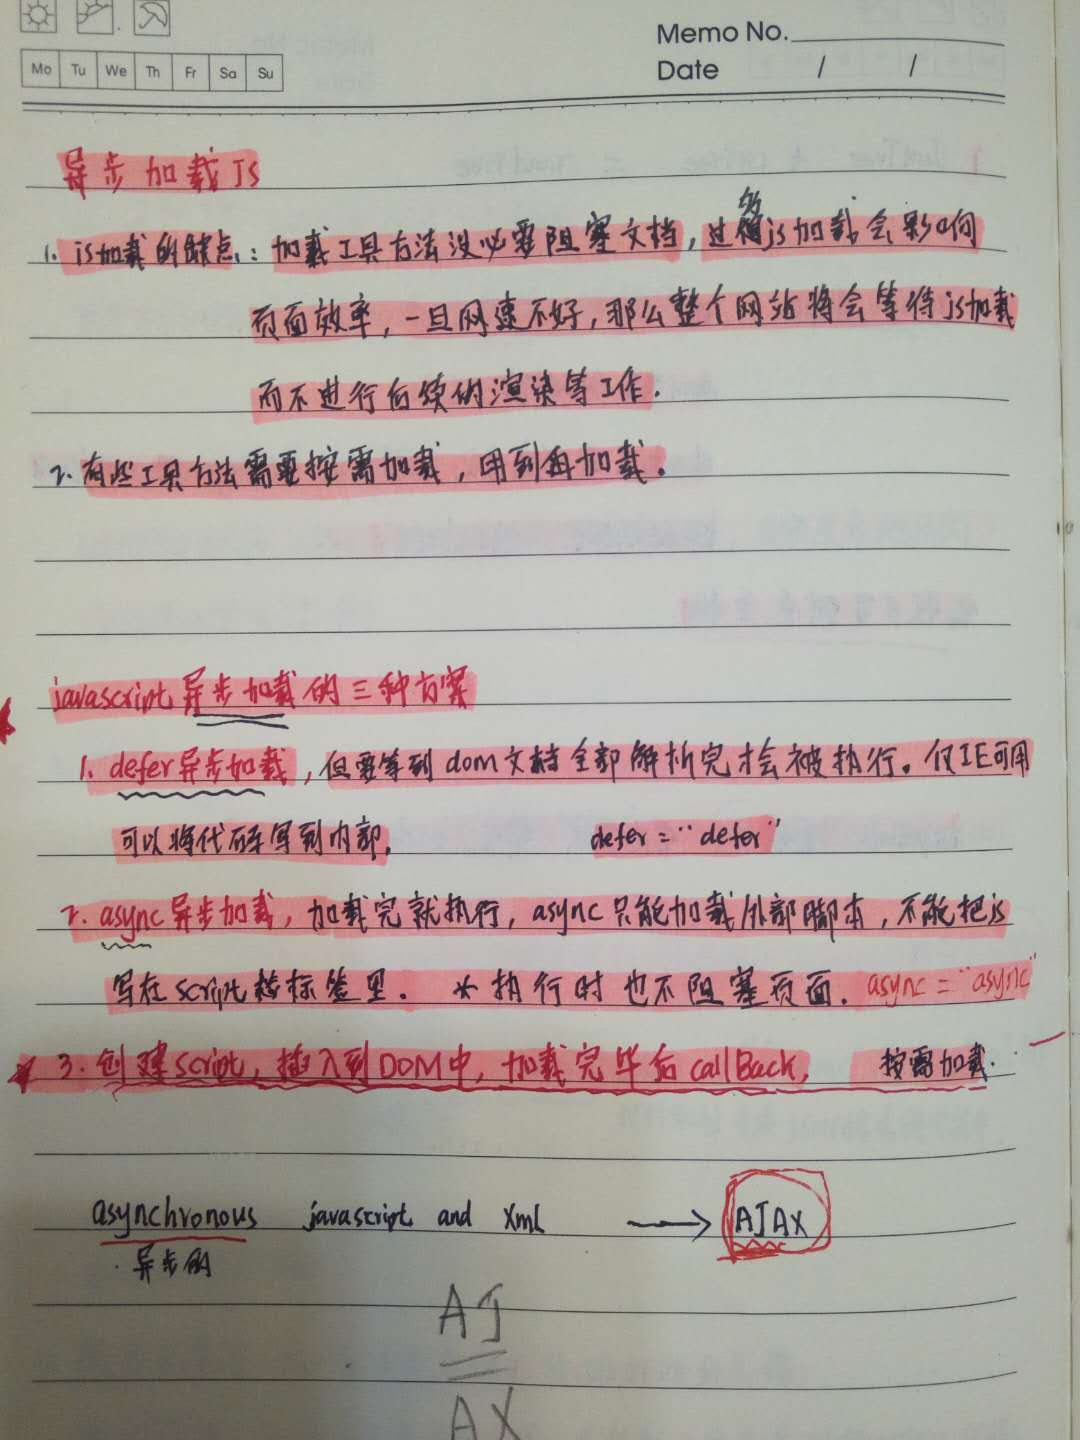 Memo No.
Mo Tu We Th Fr Sa Su
Date / /
异步加载JS
1. js加载的缺点：加载工具方法没必要阻塞文档，过多js加载会影响
页面效率，一旦网速不好，那么整个网站将会等待js加载
而不进行后续的渲染等工作．
2. 有些工具方法需要按需加载，用到再加载．
javascript异步加载的三种方案
1. defer异步加载，但要等到dom文档全部解析完才会被执行。仅IE可用
可以将代码写到内部． defer="defer"
2. async异步加载，加载完就执行，async只能加载外部脚本，不能把js
写在script标签里． * 执行时也不阻塞页面．async="async"
3. 创建script，插入到DOM中，加载完毕后callBack， 按需加载．
asynchronous javascript and xml → AJAX
异步的
AJ
AX